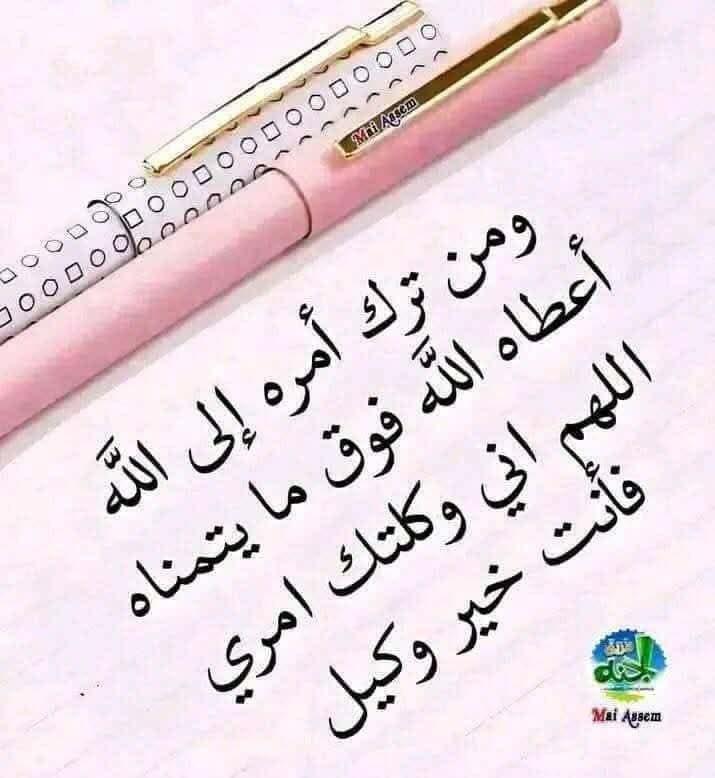 Mai Assem
ومن ترك أمره إلى اللَّه
أعطاه اللَّه فوق ما يتمناه
اللهم اني وكلتك امري
فأنت خير وكيل
Mai Assem